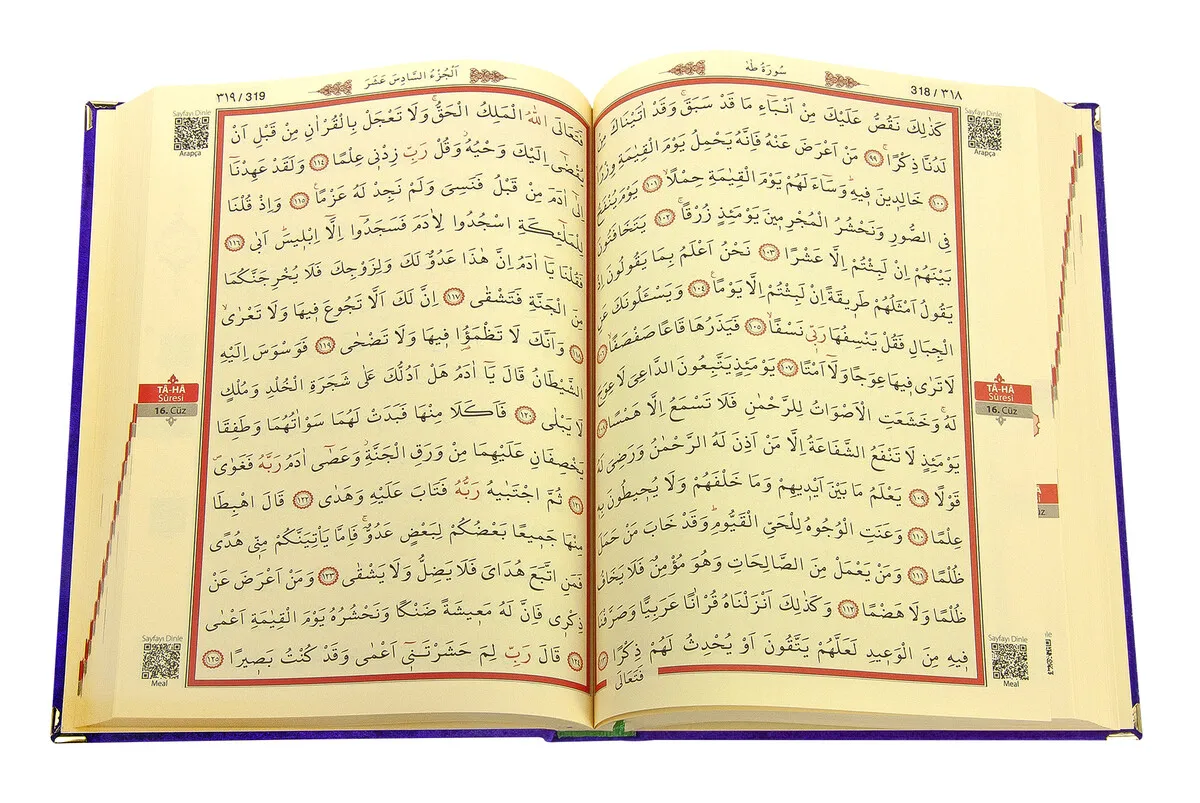 سُورَةُ طٰهٰ
318 / ٣١٨
كَذٰلِكَ نَقُصُّ عَلَيْكَ مِنْ اَنْبَٓاءِ مَا قَدْ سَبَقَۚ وَقَدْ اٰتَيْنَاكَ مِنْ
لَدُنَّا ذِكْرًاۚ ٩٩ مَنْ اَعْرَضَ عَنْهُ فَاِنَّهُ يَحْمِلُ يَوْمَ الْقِيٰمَةِ وِزْرًا
١٠٠ خَالِدٖينَ فٖيهِۜ وَسَٓاءَ لَهُمْ يَوْمَ الْقِيٰمَةِ حِمْلًاۙ ١٠١ يَوْمَ يُنْفَخُ
فِي الصُّورِ وَنَحْشُرُ الْمُجْرِمٖينَ يَوْمَئِذٍ زُرْقًاۚ ١٠٢ يَتَخَافَتُونَ
بَيْنَهُمْ اِنْ لَبِثْتُمْ اِلَّا عَشْرًا ١٠٣ نَحْنُ اَعْلَمُ بِمَا يَقُولُونَ اِذْ
يَقُولُ اَمْثَلُهُمْ طَرٖيقَةً اِنْ لَبِثْتُمْ اِلَّا يَوْمًاۚ ١٠٤ وَيَسْـَٔلُونَكَ عَنِ
الْجِبَالِ فَقُلْ يَنْسِفُهَا رَبّٖي نَسْفًاۙ ١٠٥ فَيَذَرُهَا قَاعًا صَفْصَفًاۙ ١٠٦
لَا تَرٰى فٖيهَا عِوَجًا وَلَٓا اَمْتًاۜ ١٠٧ يَوْمَئِذٍ يَتَّبِعُونَ الدَّاعِيَ لَا عِوَجَ
لَهُۚ وَخَشَعَتِ الْاَصْوَاتُ لِلرَّحْمٰنِ فَلَا تَسْمَعُ اِلَّا هَمْسًا ١٠٨
يَوْمَئِذٍ لَا تَنْفَعُ الشَّفَاعَةُ اِلَّا مَنْ اَذِنَ لَهُ الرَّحْمٰنُ وَرَضِيَ لَهُ
قَوْلًا ١٠٩ يَعْلَمُ مَا بَيْنَ اَيْدٖيهِمْ وَمَا خَلْفَهُمْ وَلَا يُحٖيطُونَ بِهٖ
عِلْمًا ١١٠ وَعَنَتِ الْوُجُوهُ لِلْحَيِّ الْقَيُّومِۜ وَقَدْ خَابَ مَنْ حَمَلَ
ظُلْمًا ١١١ وَمَنْ يَعْمَلْ مِنَ الصَّالِحَاتِ وَهُوَ مُؤْمِنٌ فَلَا يَخَافُ
ظُلْمًا وَلَا هَضْمًا ١١٢ وَكَذٰلِكَ اَنْزَلْنَاهُ قُرْاٰنًا عَرَبِيًّا وَصَرَّفْنَا
فٖيهِ مِنَ الْوَعٖيدِ لَعَلَّهُمْ يَتَّقُونَ اَوْ يُحْدِثُ لَهُمْ ذِكْرًا ١١٣
فَتَعَالَى
Sayfayı Dinle
Arapça
TÂ-HÂ
Sûresi
16. Cüz
Sayfayı Dinle
Meal
٣١٩ / 319
اَلْجُزْءُ السَّادِسَ عَشَرَ
فَتَعَالَى اللّٰهُ الْمَلِكُ الْحَقُّۚ وَلَا تَعْجَلْ بِالْقُرْاٰنِ مِنْ قَبْلِ اَنْ
يُقْضٰٓى اِلَيْكَ وَحْيُهُۘ وَقُلْ رَبِّ زِدْنٖي عِلْمًا ١١٤ وَلَقَدْ عَهِدْنَٓا
اِلٰٓى اٰدَمَ مِنْ قَبْلُ فَنَسِيَ وَلَمْ نَجِدْ لَهُ عَزْمًاۚ ١١٥ وَاِذْ قُلْنَا
لِلْمَلٰٓئِكَةِ اسْجُدُوا لِاٰدَمَ فَسَجَدُٓوا اِلَّٓا اِبْلٖيسَۜ اَبٰى ١١٦
فَقُلْنَا يَٓا اٰدَمُ اِنَّ هٰذَا عَدُوٌّ لَكَ وَلِزَوْجِكَ فَلَا يُخْرِجَنَّكُمَا
مِنَ الْجَنَّةِ فَتَشْقٰى ١١٧ اِنَّ لَكَ اَلَّا تَجُوعَ فٖيهَا وَلَا تَعْرٰىۙ
١١٨ وَاَنَّكَ لَا تَظْمَؤُ۬ا فٖيهَا وَلَا تَضْحٰى ١١٩ فَوَسْوَسَ اِلَيْهِ
الشَّيْطَانُ قَالَ يَٓا اٰدَمُ هَلْ اَدُلُّكَ عَلٰى شَجَرَةِ الْخُلْدِ وَمُلْكٍ
لَا يَبْلٰى ١٢٠ فَاَكَلَا مِنْهَا فَبَدَتْ لَهُمَا سَوْاٰتُهُمَا وَطَفِقَا
يَخْصِفَانِ عَلَيْهِمَا مِنْ وَرَقِ الْجَنَّةِۘ وَعَصٰٓى اٰدَمُ رَبَّهُ فَغَوٰىۖ
١٢١ ثُمَّ اجْتَبٰيهُ رَبُّهُ فَتَابَ عَلَيْهِ وَهَدٰى ١٢٢ قَالَ اهْبِطَا
مِنْهَا جَمٖيعًا بَعْضُكُمْ لِبَعْضٍ عَدُوٌّۚ فَاِمَّا يَأْتِيَنَّكُمْ مِنّٖي هُدًى
فَمَنِ اتَّبَعَ هُدَايَ فَلَا يَضِلُّ وَلَا يَشْقٰى ١٢٣ وَمَنْ اَعْرَضَ عَنْ
ذِكْرٖي فَاِنَّ لَهُ مَعٖيشَةً ضَنْكًا وَنَحْشُرُهُ يَوْمَ الْقِيٰمَةِ اَعْمٰى
١٢٤ قَالَ رَبِّ لِمَ حَشَرْتَنٖٓي اَعْمٰى وَقَدْ كُنْتُ بَصٖيرًا ١٢٥
Sayfayı Dinle
Arapça
TÂ-HÂ
Sûresi
16. Cüz
Sayfayı Dinle
Meal